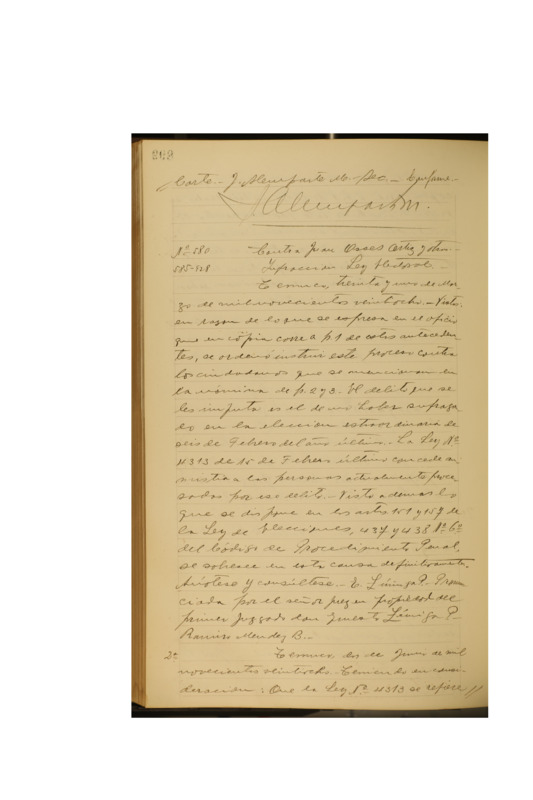 269
Corte.- J. Alemparte M. Sec.- Conforme
J Alemparte M.
Nº 580
Contra Juan Cortez y otro.-
585-928
Infracción Ley Electoral.-
Temuco, treinta y uno de Mar-
zo de mil novecientos veintiocho.- Vistos:
en razon de lo que se expresa en el oficio
que en cópia corre a p. 1 de estos anteceden-
tes, se ordenó instruir este proceso contra
los ciudadanos que se mencionan en
la nómina de p. 2 y 3. El delito que se
les imputa es el de no haber sufraga-
do en la eleccion estraordinaria de
seis de Febrero del año último. La Ley Nº
4313 de 15 de Febrero último concede am-
nistia a las personas actualmente proce-
sadas por ese delito.- Visto ademas lo
que se dispone en los arts. 151 y 157 de
la Ley de Elecciones, 437 y 438 Nº 6º
del Código de Procedimiento Penal,
se sobresee en esta causa definitivamente.
Anótese y consúltese.- E. Zúñiga P.- Pronun-
ciada por el señor juez en propiedad del
primer Juzgado don Ernesto Zúñiga P.
Ramiro Mendez B.-
2ª
Temuco, de Junio de mil
novecientos veintiocho. Teniendo en consi-
deracion: Que la Ley Nº 4313 se refiere //